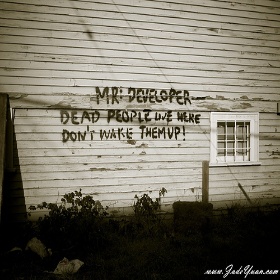 MR: DEVELOPER
DEAD PEOPLE LIVE HERE
DON'T WAKE THEM UP!
www.JadeYuan.com